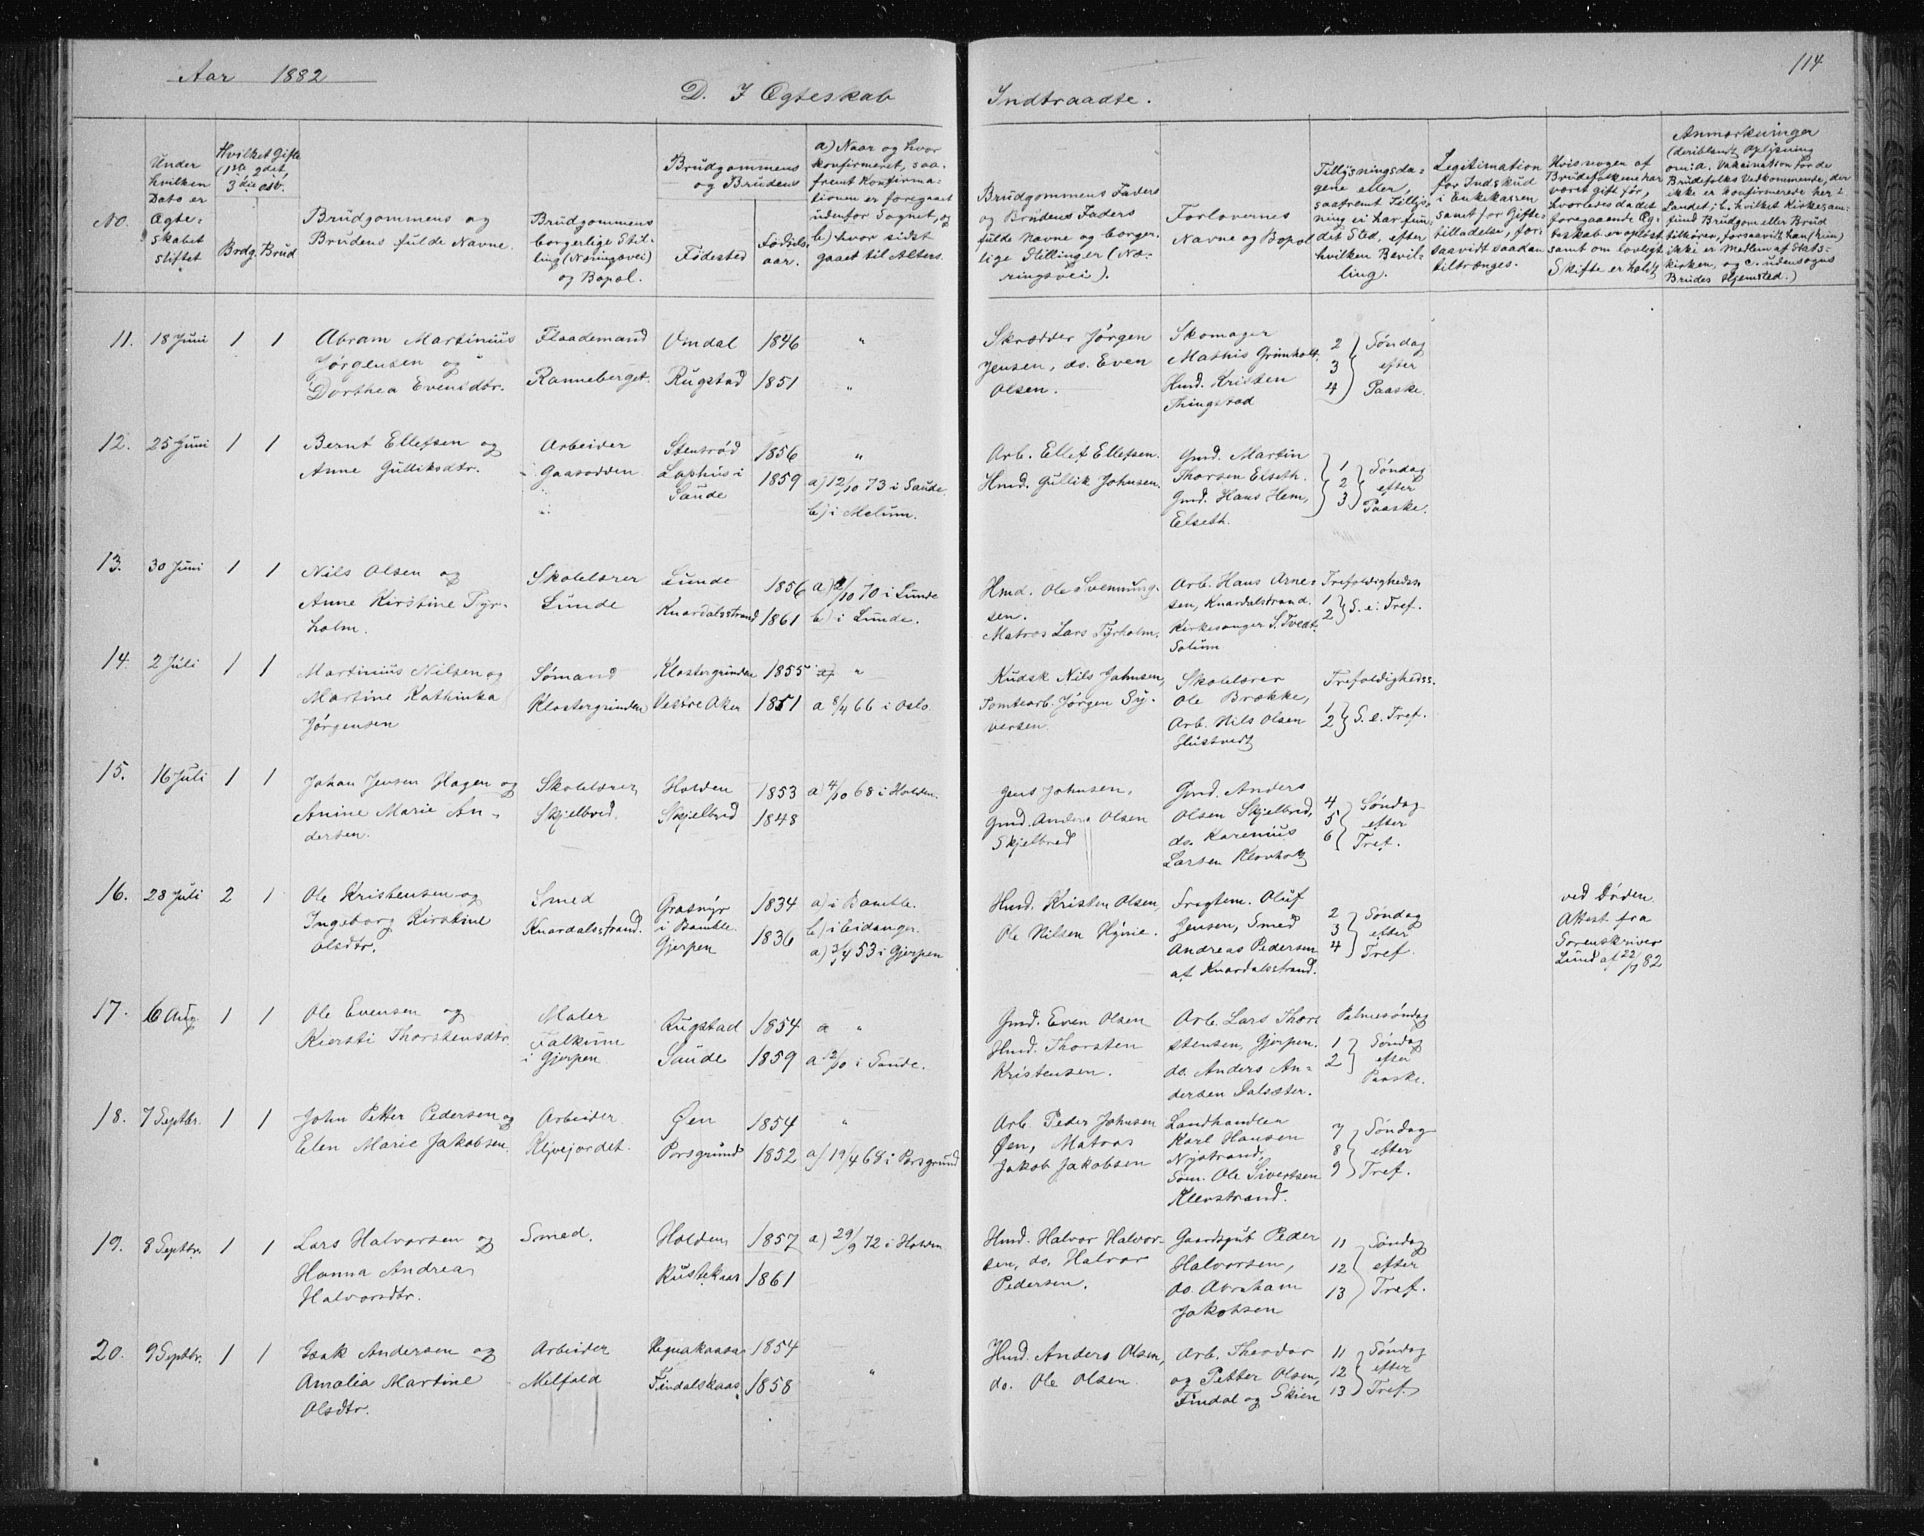 Aar 1882
114
D. I Ægteskab Indtraadte.
No.
Under
hvilken
Dato er
Ægte-
skabet
stiftet
Hvilket Gifte
(1ste 2det,
3die osv.
Brdg. Brud
Brudgommens og
Brudens fulde Navne.
Brudgommens
borgerlige Stil-
ling (Næringsvei)
og Bopæl.
Brudgommens
og Brudens
Fødested
Fødsels-
aar.
a) Naar og hvor
konfirmeret, saa-
fremt Konfirma-
tionen er foregaaet
udenfor Sognet, og
b) hvor sidst
gaaet til Alters.
Brudgommens Faders
og Brudens Faders
fulde Navne og borger-
lige Stillinger (Næ-
ringsvei).
Forlovernes
Navne og Bopæl
Tillysningsda-
gene eller,
saafremt Tillys-
ning ei har fun-
det Sted, efter
hvilken Bevil-
ling.
Legitimation
for Indskud
i Enkekassen
samt for Gifte-
tilladelse, for-
saavidt saadan
tiltrænges.
Hvis nogen af
Brudefolkene har
været gift før,
hvorledes dadet
foregaaende Æg-
teskab er opløst
samt om lovligt
Skifte er holdt
Anmærkninger
(deriblandt Oplysning
om: a. Vakcination for de
Brudefolks Vedkommende, der
ikke er konfirmerede her i
Landet; b. hvilket Kirkesam-
fund Brudgom eller Brud
tilhører, forsaavidt han (hun)
ikke er Medlem af Stats-
kirken, og c. udensogns
Brudes Hjemsted.)
11. 18 Juni 1 1 Abram Martinius Flaademand Vindal 1846 "
Jørgensen og
Dorthea Evensdtr. Ranneberget. Rugstad 1851 "
Skrædder Jørgen
Jensen, do. Even
Olsen.
Skomager
Mathis Grinholt.
Hmd. Kristen
Thingstad
2 Søndag
3 efter
4 Paaske.
12. 25 Juni 1 1 Bernt Ellefsen og Arbeider Stensrød 1856 "
Anne Gulliksdtr. Gaasodden Laghus i 1859 a) 12/10 73 i Saude
Saude
b) i Melum.
Arb. Ellef Ellefsen.
Hmd. Gullik Johnsen.
Gmd. Martin
Thorsen Elseth.
Gmd. Hans Hem,
Elseth.
1 Søndag
2 efter
3 Paaske.
13. 30 Juni 1 1 Nils Olsen og Skolelærer Lunde 1856 a) 2/10 70 i Lunde
Anne Kirstine Tyr- Lunde Knardalsstrand 1861 b) i Lunde.
holm.
Hmd. Ole Svennung-
sen.
Matros Lars Tyrholm.
Arb. Hans Arne-
sen, Knardalstrand.
Kirkesanger S. Tvedt.
Solum
Trefoldighedss.
1
2 S. e. Tref.
14. 2 Juli 1 1 Martinius Nilsen og Sømand Klostergrunden 1855 a) "
Martine Kathinka Klostergrunden Vestre Aker 1851 a 8/4 66 i Oslo.
Jørgensen
Kudsk Nils Johnsen,
Tomtearb. Jørgen Sy-
versen.
Skolelærer
Ole Brække,
Arb. Nils Olsen
Hustvedt
Trefoldighedss.
1
2 S. e. Tref.
15. 16 Juli 1 1 Johan Jensen Hagen og Skolelærer, Holden 1853 a) 4/10 68 i Holden.
Anine Marie An- Skjelbred. Skjelbred 1848
dersen.
Jens Johnsen,
Gmd. Anders Olsen
Skjelbred
Gmd. Anders
Olsen Skjelbred,
do. Karenius
Larsen Klovholt
4 Søndag
5 efter
6 Tref.
16. 28 Juli 2 1 Ole Kristensen og Smed Grasmyr 1834 a) i Bamble.
Ingeborg Kirstine Knardalsstrand. i Bamble. b) i Eidanger.
Olsdtr. Gjerpen 1836 a) 3/4 53 i Gjerpen
Hmd. Kristen Olsen,
Ole Nilsen Hynie.
Fragtem. Oluf
Jensen, Smed
Andreas Pedersen
af Knardalsstrand.
2 Søndag
3 efter
4 Tref.
ved Døden.
Attest fra
Sorenskriver
Lund af 22/7 82
17. 6 Aug 1 1 Ole Evensen og Maler Rugstad 1854 a "
Kiersti Thorstensdtr. Falkum Saude 1859 a 12/10 i Saude.
i Gjerpen
Gmd. Even Olsen
Hmd. Thorsten
Kristensen.
Arb. Lars Thor-
stensen, Gjerpen.
do. Anders An-
dersen Dalsæter.
Palmesøndag
1 Søndag
2 efter
Paaske.
18. 7 Septbr. 1 1 John Petter Pedersen og Arbeider Øen 1854 "
Elen Marie Jakobsen. Klevejordet. Porsgrund 1852 a) 19/4 68 i Porsgrund
Arb. Peder Johnsen
Øen, Matros
Jakob Jakobsen
Landhandler
Karl Hansen
Nystrand,
Søm. Ole Sivertsen
Klevstrand.
7 Søndag
8 efter
9 Tref.
19. 8 Septbr. 1 1 Lars Halvorsen og Smed. Holden 1857 a) 29/9 72 i Holden
Hanna Andrea Rustekaas 1861
Halvorsdtr.
Hmd. Halvor Halvor-
sen, do. Halvor
Pedersen.
Gaardsgut Peder
Halvorsen,
do. Abraham
Jakobsen
11 Søndag
12 efter
13 Tref.
20. 9 Septbr. 1 1 Isak Andersen og Arbeider 1854
Amalia Martine Melfald Findalskaas 1858 "
Olsdtr.
Hmd. Anders Olsen,
do. Ole Olsen.
Arb. Theodor
og Petter Olsen,
Findal og Skien
11 Søndag
12 efter
13 Tref.